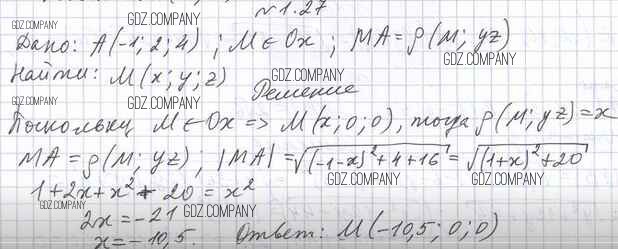 №1.27
GDZ.COMPANY GDZ.COMPANY GDZ.COMPANY
Дано: A(-1; 2; 4) ; M ∈ Ox ; MA = ρ(M; yz)
GDZ.COMPANY
Найти: M(x; y; z) GDZ.COMPANY
GDZ.COMPANY Решение
Поскольку M ∈ Ox => M(x; 0; 0), тогда ρ(M; yz) = x
GDZ.COMPANY GDZ.COMPANY
MA = ρ(M; yz) ; |MA| = √((-1-x)²+4+16) = √((1+x)²+20)
GDZ.COMPANY GDZ.COMPANY GDZ.COMPANY
1+2x+x² + 20 = x²
2x = -21 GDZ.COMPANY GDZ.COMPANY
x = -10,5. Ответ: M(-10,5; 0; 0)